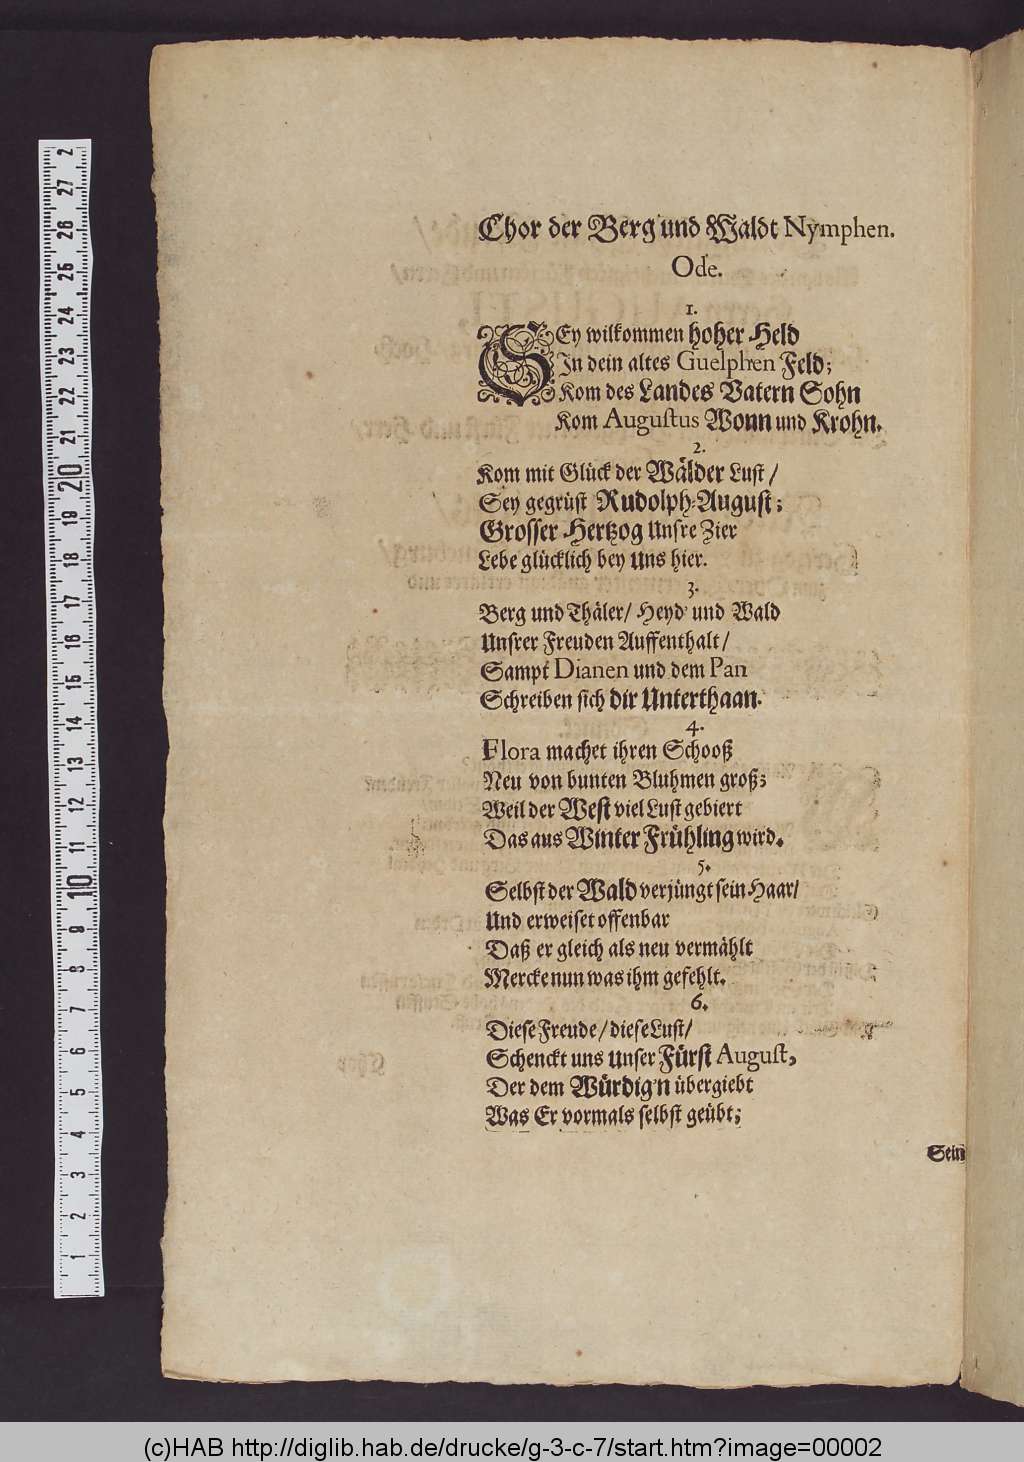 Chor der Berg und Waldt Nymphen.
Ode.
1.
SEy wilkommen hoher Held
In dein altes Guelphen Feld;
Kom des Landes Vatern Sohn
Kom Augustus Wonn und Krohn.
2.
Kom mit Glück der Wälder Lust /
Sey gegrüst Rudolph-August;
Grosser Hertzog Unsre Zier
Lebe glücklich bey Uns hier.
3.
Berg und Thäler/ Heyd' und Wald
Unsrer Freuden Auffenthalt/
Sampt Dianen und dem Pan
Schreiben sich dir Unterthaan.
4.
Flora machet ihren Schooß
Neu von bunten Bluhmen groß;
Weil der West viel Lust gebiert
Das aus Winter Frühling wird.
5.
Selbst der Wald verjüngt sein Haar/
Und erweiset offenbar
Daß er gleich als neu vermählt
Mercke nun was ihm gefehlt.
6.
Diese Freude/ diese Lust/
Schenckt uns Unser Fürst August,
Der dem Würdig'n übergiebt
Was Er vormals selbst geübt;
Sein
1 2 3 4 5 6 7 8 9 10 11 12 13 14 15 16 17 18 19 20 21 22 23 24 25 26 27 2
(c)HAB http://diglib.hab.de/drucke/g-3-c-7/start.htm?image=00002